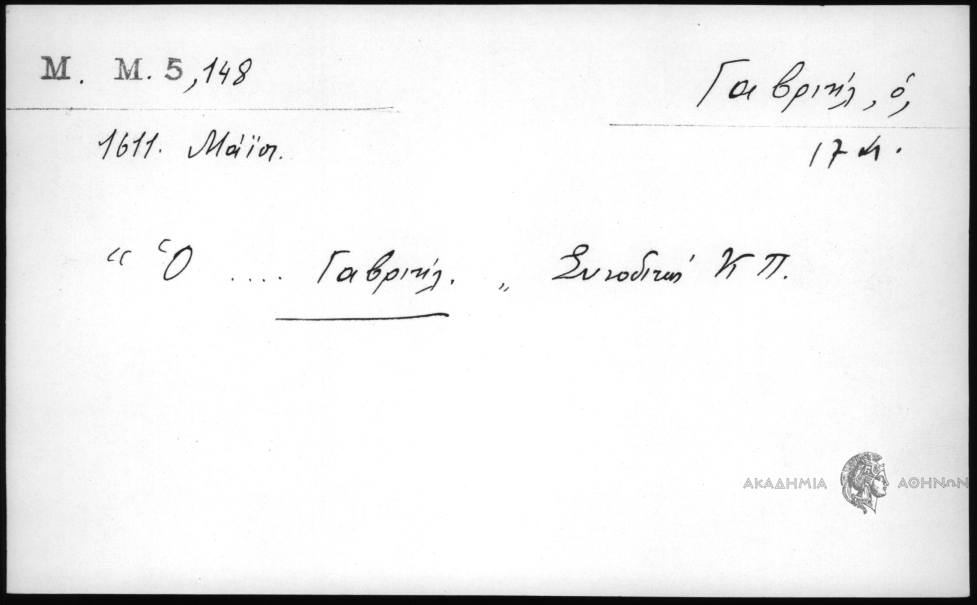 Μ. Μ. 5,148
Γαβριήλ, ὁ,
1611. Μάϊοσ.
17 Μ.
“ Ὁ .... Γαβριήλ. „ Συνοδικῶς ΚΠ.
ΑΚΑΔΗΜΙΑ ΑΘΗΝΩΝ